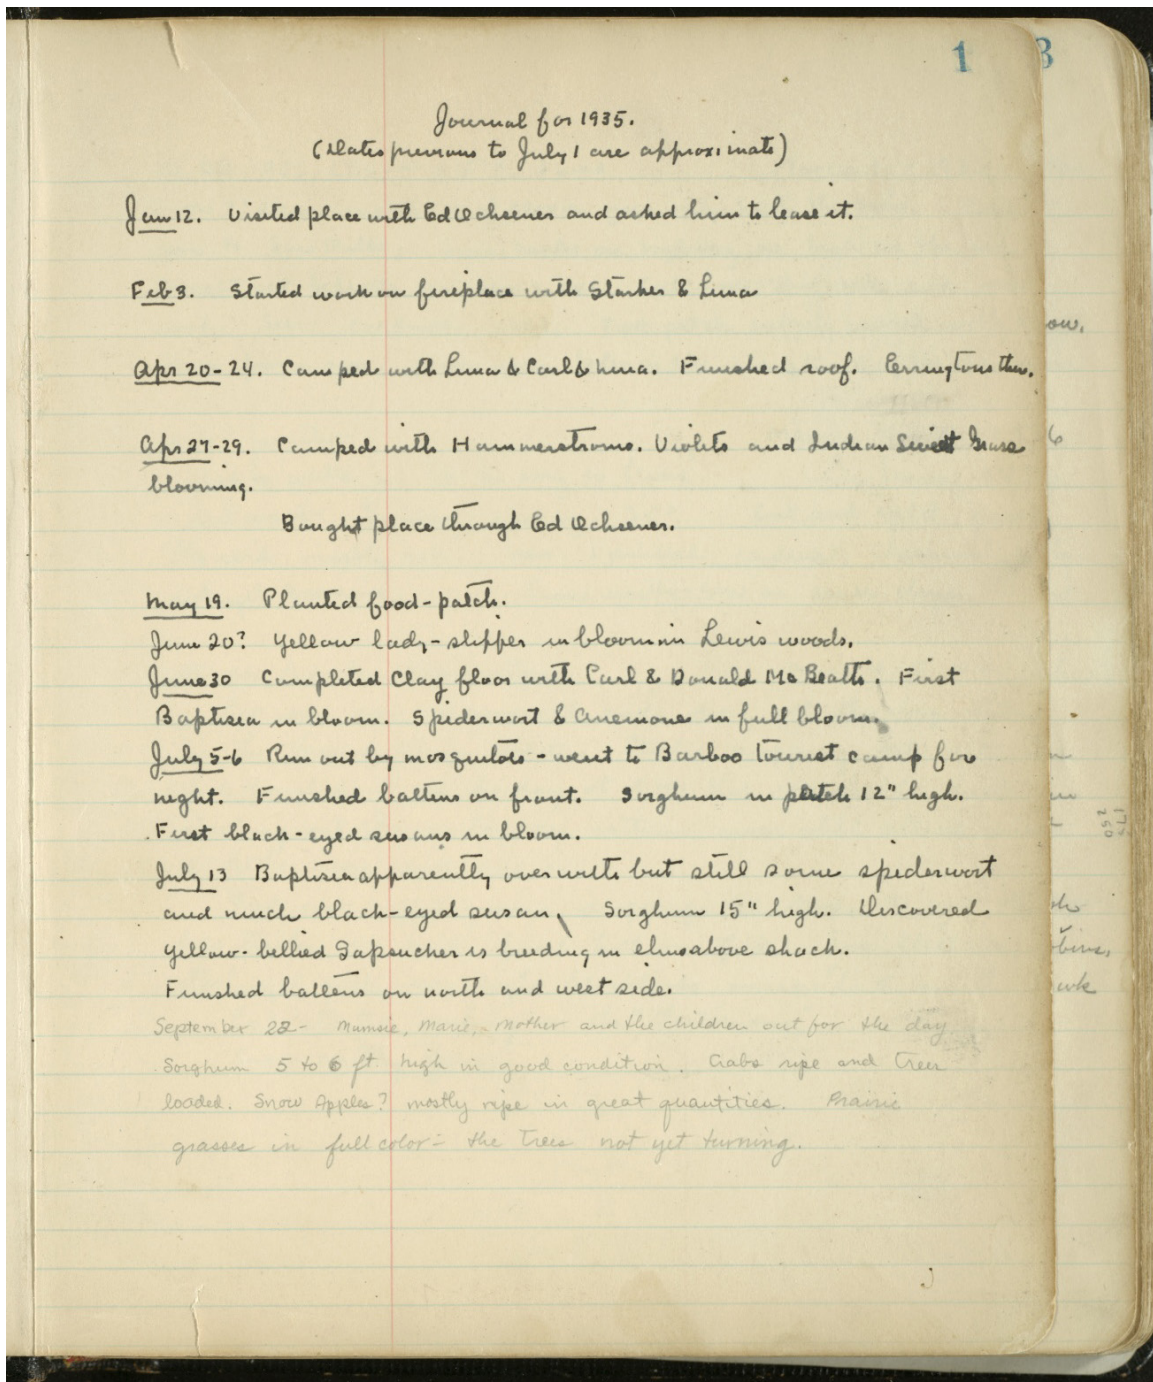 1
3
Journal for 1935.
(Dates previous to July 1 are approximate)
Jan 12. Visited place with Ed Ochsener and asked him to lease it.
Feb 3. Started work on fireplace with Starker & Luna
Apr 20-24. Camped with Luna & Carl & Nina. Finished roof. Erringtons there.
Apr 27-29. Camped with Hammerstroms. Violets and Indian Sweet Grass
blooming.
Bought place through Ed Ochsener.
May 19. Planted food-patch.
June 20? Yellow lady-slipper in bloom in Lewis woods.
June 30 Completed Clay floor with Carl & Donald McBeatts. First
Baptisia in bloom. Spiderwort & Anemone in full bloom.
July 5-6 Run out by mosquitoes - went to Barboo tourist camp for
night. Finished battens on front. Sorghum in patch 12" high.
First black-eyed susans in bloom.
July 13 Baptisia apparently over with but still some spiderwort
and much black-eyed susan, Sorghum 15" high. Discovered
yellow-bellied Sapsucker is breeding in elms above shack.
Finished battens on north and west side.
September 22 - Mumsie, Marie, - Mother and the children out for the day
Sorghum 5 to 6 ft. high in good condition. Crabs ripe and trees
loaded. Snow Apples? mostly ripe in great quantities. Prairie
grasses in full color - the trees not yet turning.
ow.
6